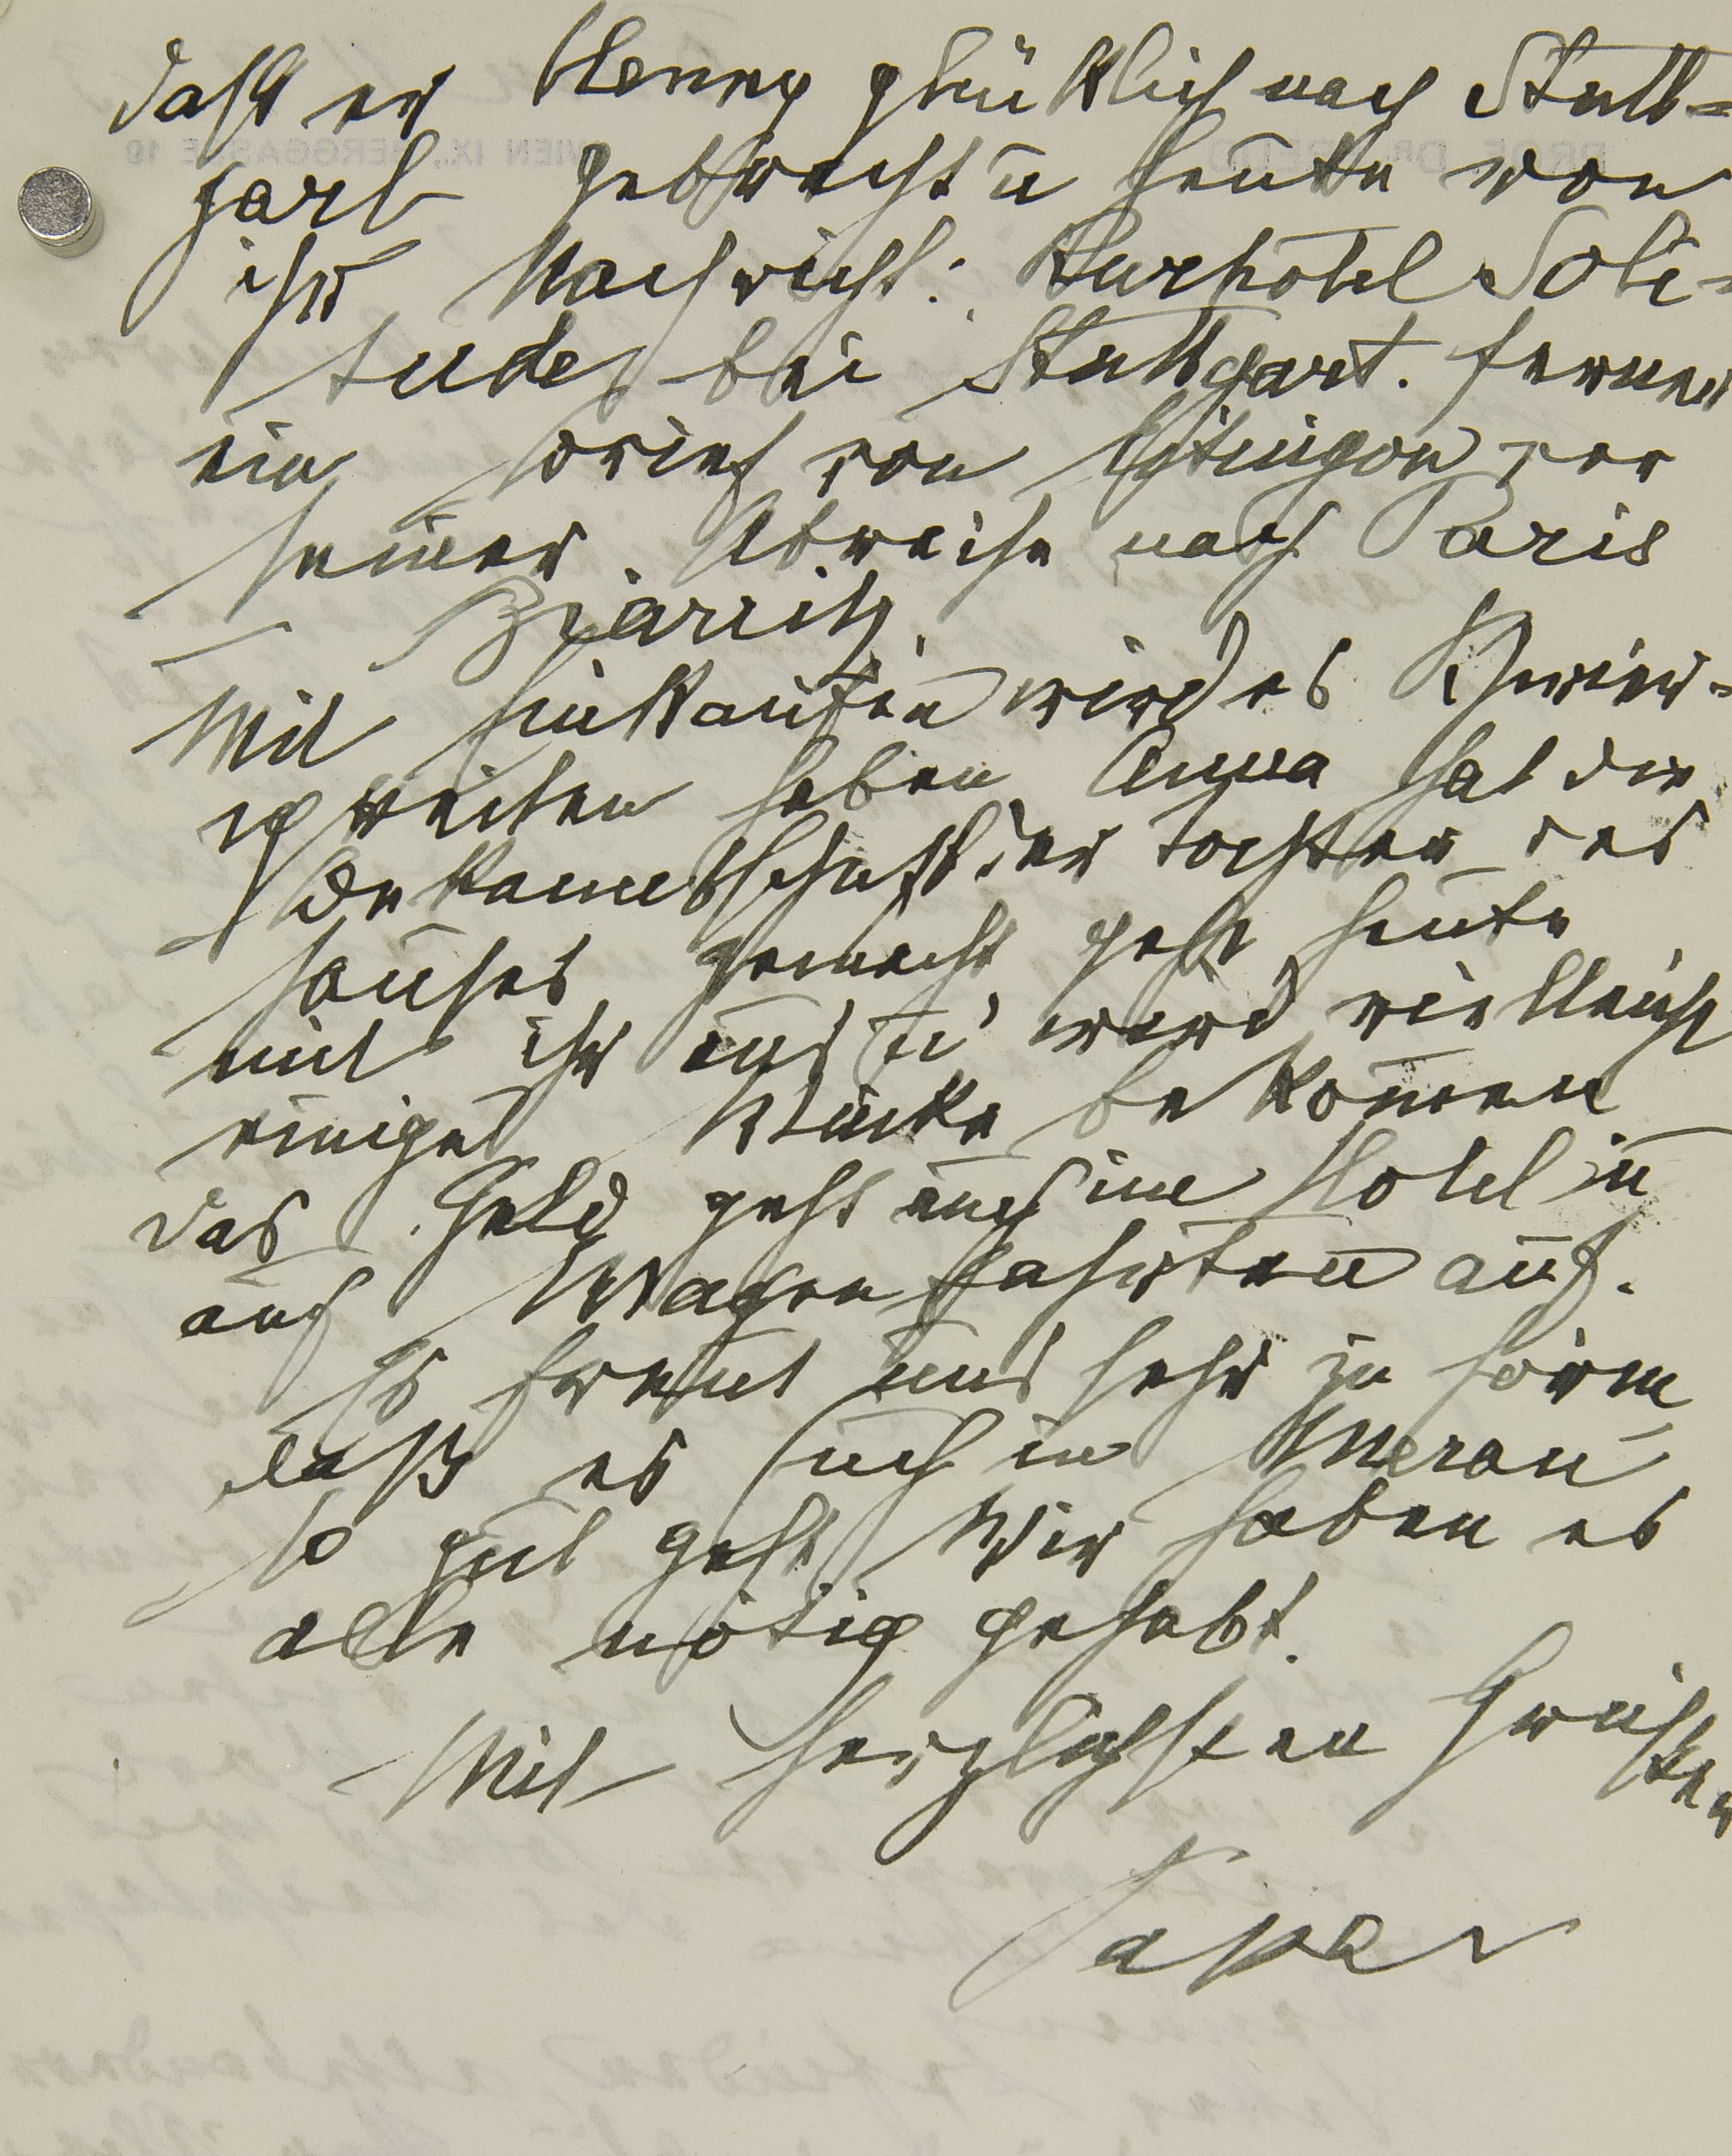 daß er Henny glücklich nach Stutt-
gart gebracht u heute von
ihr Nachricht: Kurhotel Soli-
tude bei Stuttgart. Ferner
ein Brief von Eitingon vor
seiner Abreise nach Paris
– Biarritz.
Mit Einkäufen wird es Schwierig-
keiten haben. Anna hat die
Bekanntschaft der Tochter des
Hauses gemacht, geht heute
mit ihr aus u wird vielleicht
einige Stücke bekommen.
Das Geld geht auch im Hotel u
auf Wagenfahrten auf.
Es freut uns sehr zu hören,
daß es Euch in Meran
so gut geht. Wir haben es
alle nötig gehabt.
Mit herzlichsten Grüßen
Papa
PROF. DR. FREUD WIEN IX., BERGGASSE 19